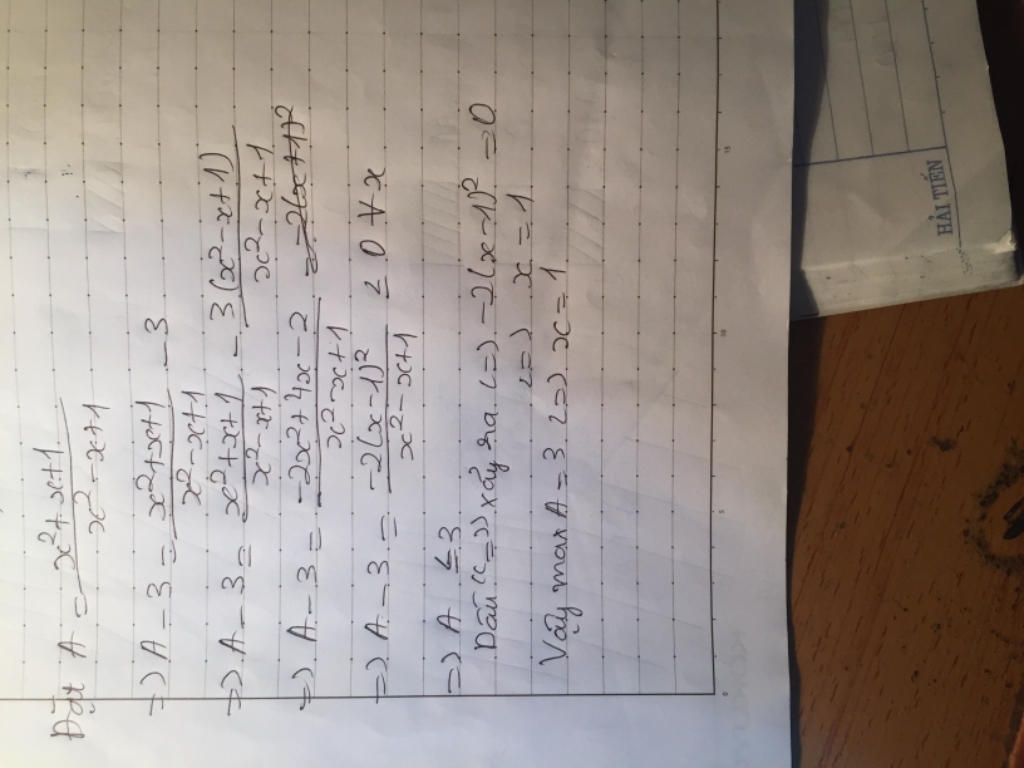 Đặt A = x²+x+1 / x²-x+1
=> A - 3 = x²+x+1 / x²-x+1 - 3
=> A - 3 = x²+x+1 / x²-x+1 - 3(x²-x+1) / x²-x+1
=> A - 3 = -2x²+4x-2 / x²-x+1 = -2(x+1)²
=> A - 3 = -2(x-1)² / x²-x+1 ≤ 0 ∀ x
=> A ≤ 3
Dấu "=" xảy ra <=> -2(x-1)² = 0
<=> x = 1
Vậy max A = 3 <=> x = 1
HẢI TIẾN
0
5
10
15